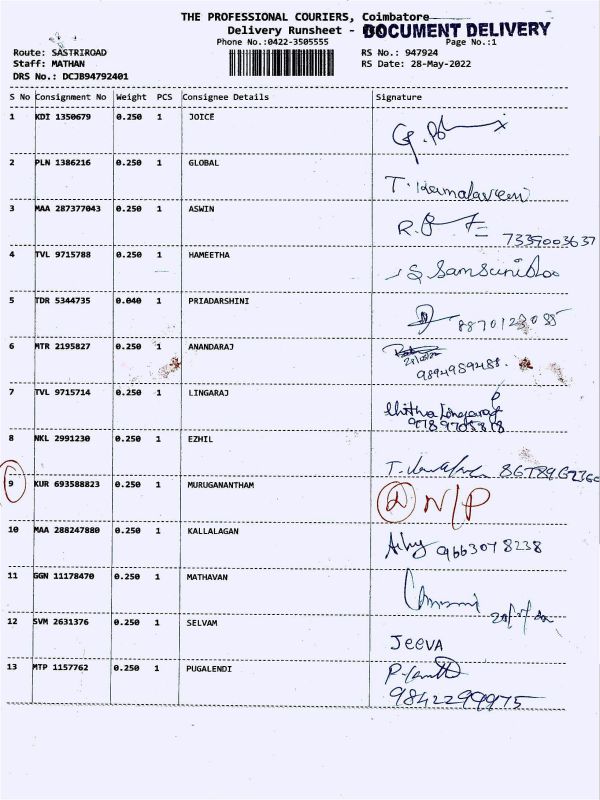 THE PROFESSIONAL COURIERS, Coimbatore
Delivery Runsheet - DOCUMENT DELIVERY
Phone No.:0422-3505555 Page No.:1
Route: SASTRIROAD RS No.: 947924
Staff: MATHAN RS Date: 28-May-2022
DRS No.: DCJB94792401
S No Consignment No Weight PCS Consignee Details Signature
1 KDI 1350679 0.250 1 JOICE
2 PLN 1386216 0.250 1 GLOBAL
T. Kamalaveni
3 MAA 287377043 0.250 1 ASWIN
7339003637
4 TVL 9715788 0.250 1 HAMEETHA
5 TDR 5344735 0.040 1 PRIADARSHINI
6 MTR 2195827 0.250 1 ANANDARAJ
9894959488.
7 TVL 9715714 0.250 1 LINGARAJ
8 NKL 2991230 0.250 1 EZHIL
9 KUR 693588823 0.250 1 MURUGANANTHAM N/P
10 MAA 288247880 0.250 1 KALLALAGAN
9663078238
11 GGN 11178470 0.250 1 MATHAVAN
12 SVM 2631376 0.250 1 SELVAM
JEEVA
13 MTP 1157762 0.250 1 PUGALENDI
9842299975